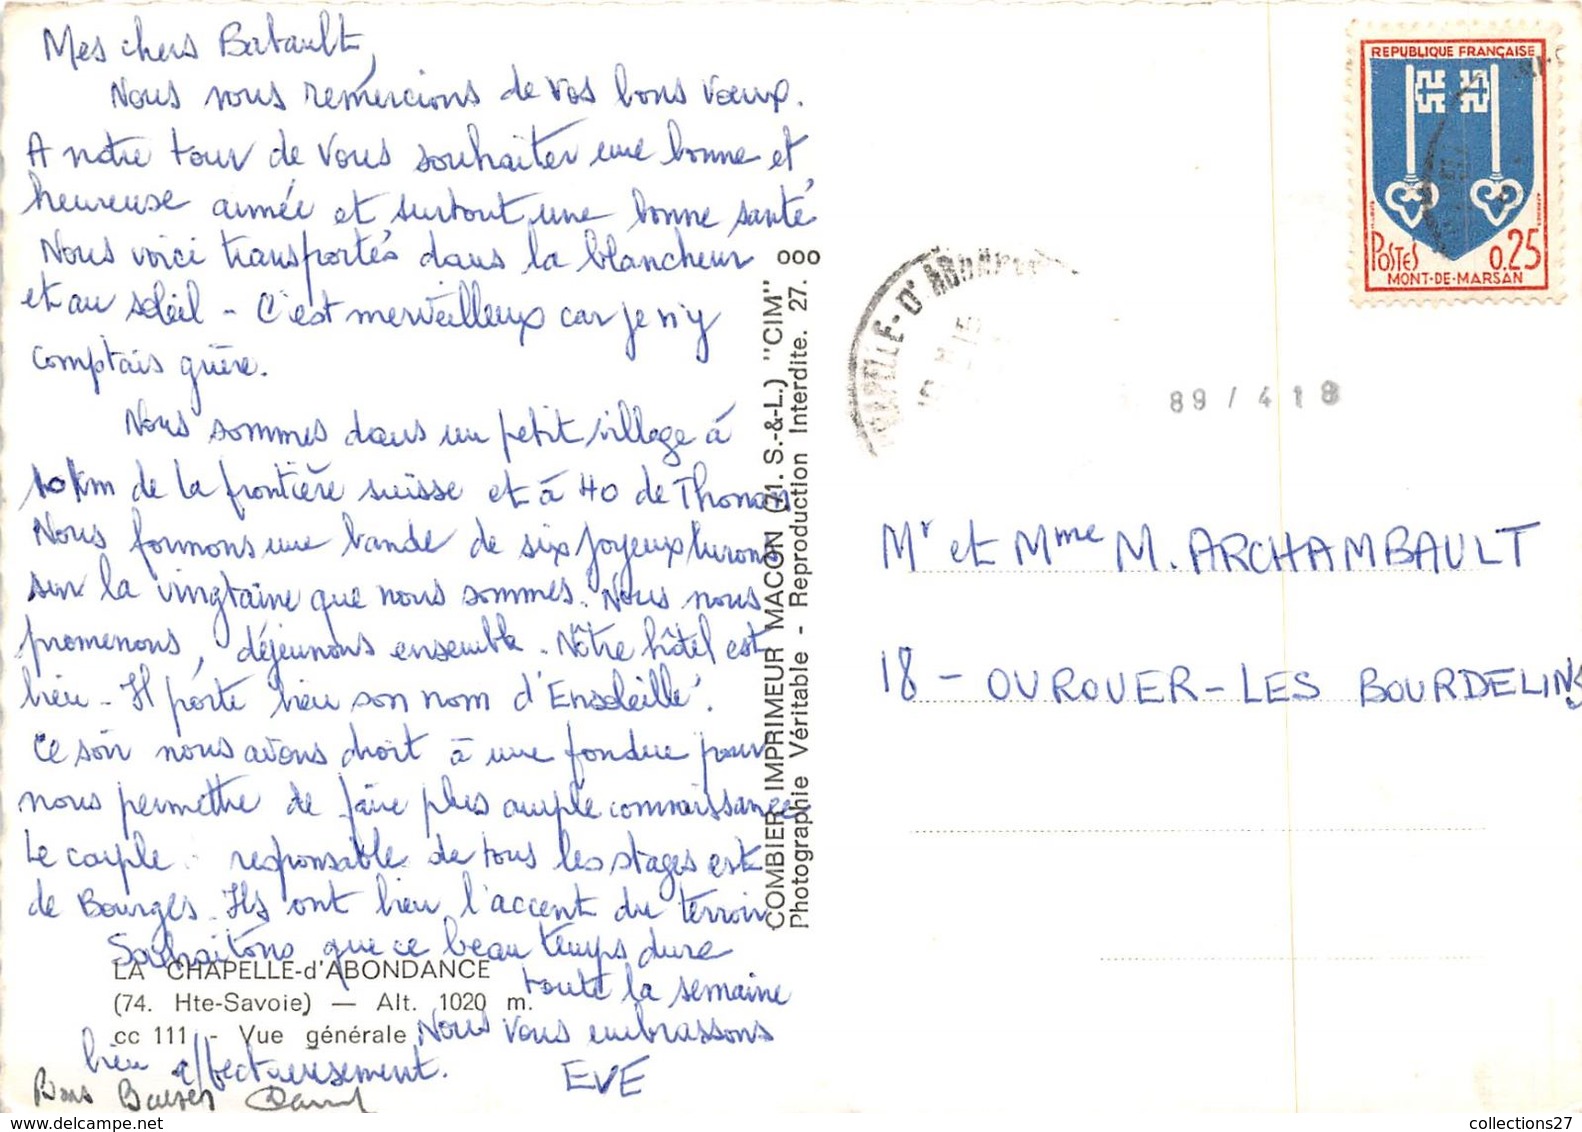 Mes chers Batault,
Nous vous remercions de vos bons vœux.
A notre tour de vous souhaiter une bonne et
heureuse année et surtout une bonne santé
Nous voici transportés dans la blancheur
et au soleil - C'est merveilleux car je n'y
comptais guère.
Nous sommes dans un petit village à
10 km de la frontière suisse et à 40 de Thonon
Nous formons une bande de six joyeux lurons
sur la vingtaine que nous sommes. Nous nous
promenons, déjeunons ensemble. Nôtre hôtel est
bien - Il porte bien son nom d'Ensoleillé.
Ce soir nous avons droit à une fondue pour
nous permettre de faire plus ample connaissance
Le couple responsable de tous les stages est
de Bourges. Ils ont bien l'accent du terroir
Souhaitons que ce beau temps dure
toute la semaine
Nous vous embrassons
bien affectueusement.
EVE
Bons Baisers
LA CHAPELLE-d'ABONDANCE
(74. Hte-Savoie) — Alt. 1020 m.
cc 111 - Vue générale
COMBIER IMPRIMEUR MACON (71. S.-&-L.) "CIM" ooo
Photographie Véritable - Reproduction Interdite. 27.
REPUBLIQUE FRANÇAISE
POSTES 0.25
MONT-DE-MARSAN
CHAPELLE-D'ABONDANCE
89 / 418
Mr et Mme M. ARCHAMBAULT
18 - OUROUER-LES BOURDELINS
collections27